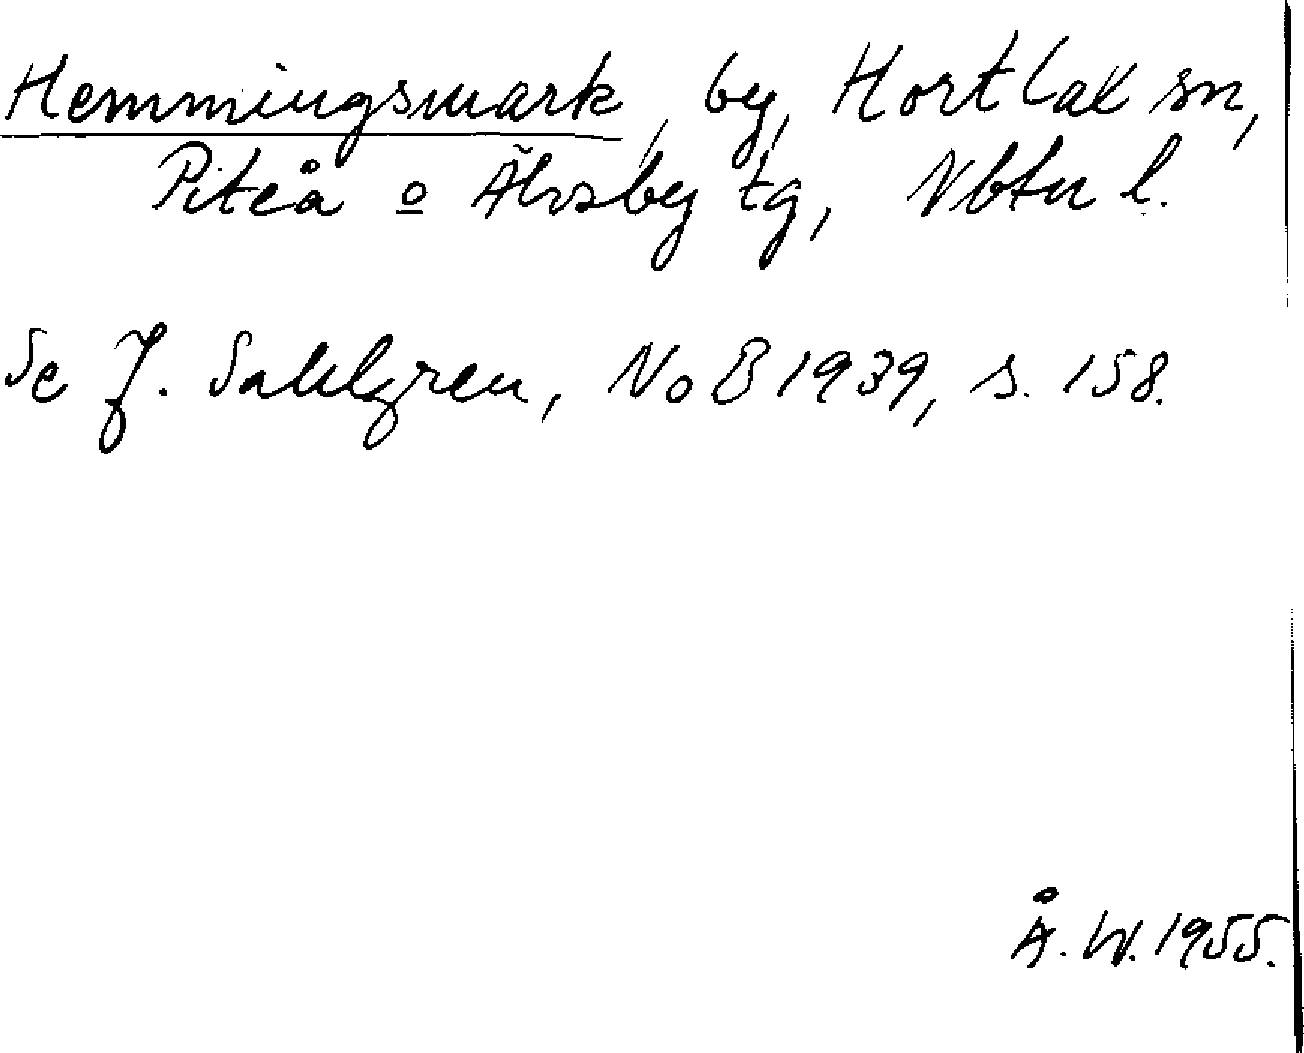 Hemmingsmark, by, Hortlax sn,
Piteå o Älvsby tg, Nbtn l.
Se J. Sahlgren, NoB 1939, s. 158.
Å. W. 1955.